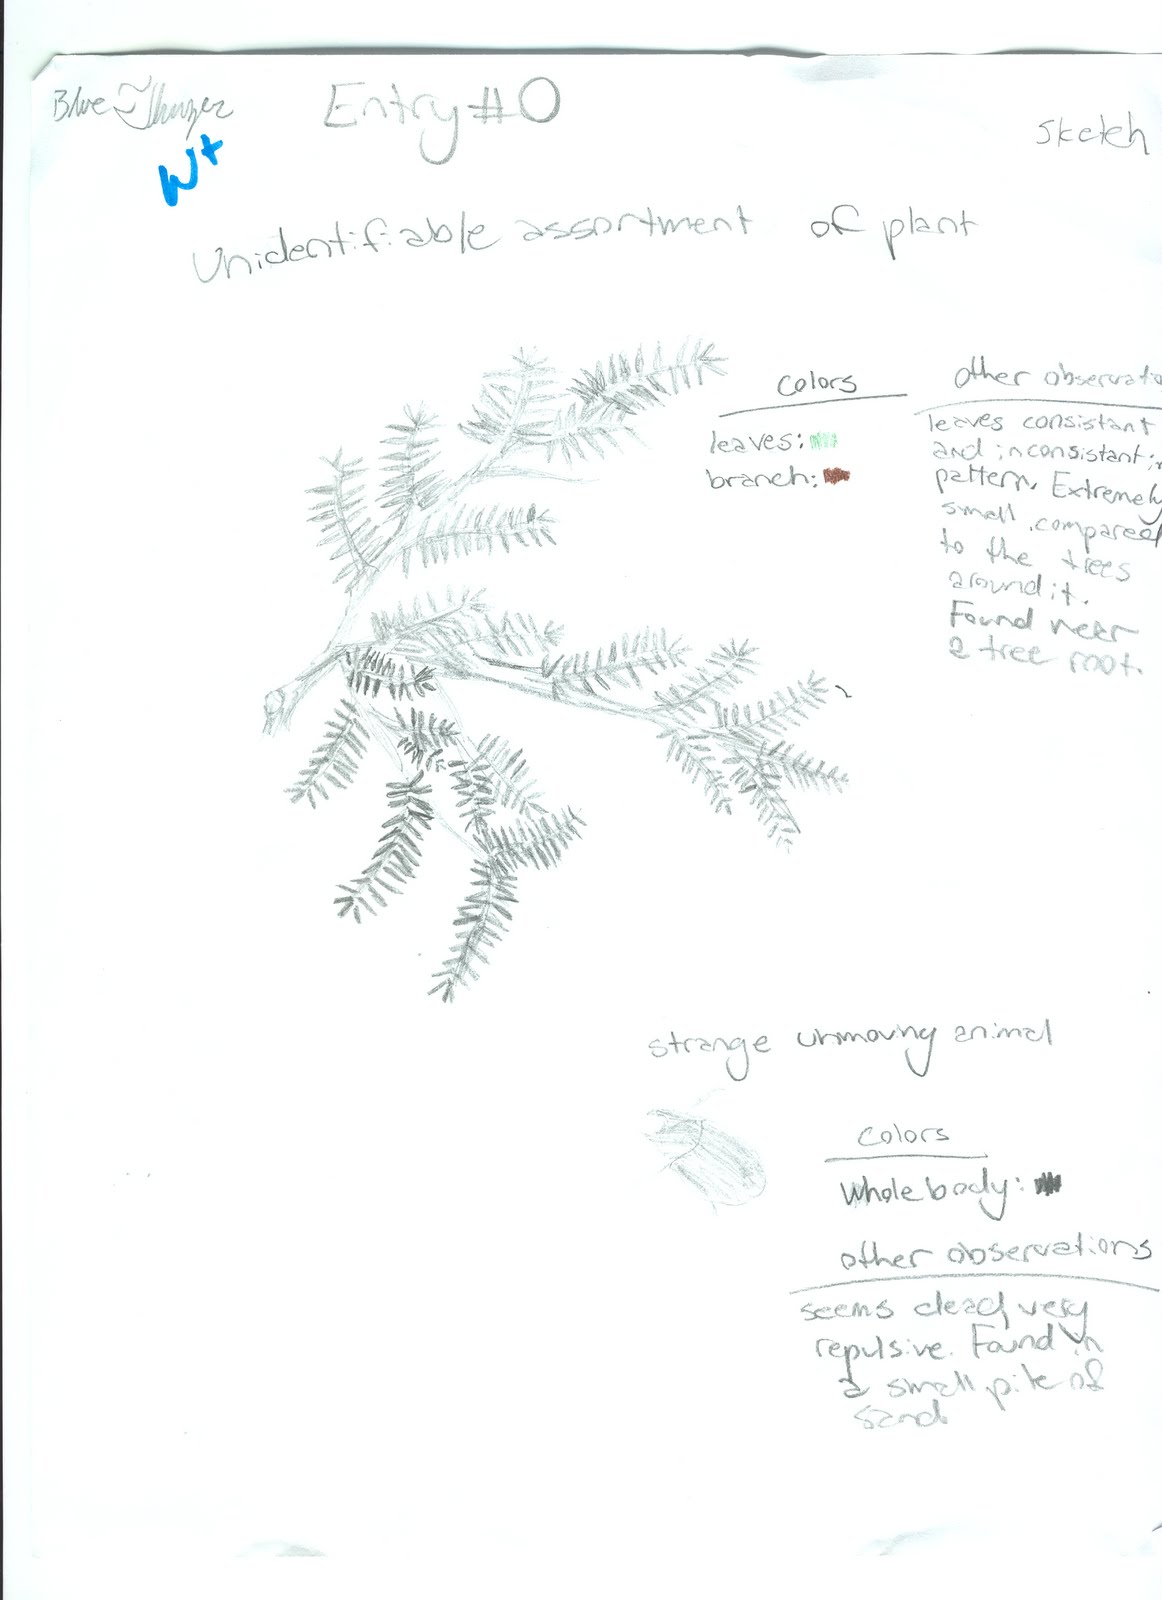 Blue
Entry #0
sketch
W+
Unidentifiable assortment of plant
colors
leaves:
branch:
other observatio
leaves consistant
and inconsistant in
pattern. Extremely
small compared
to the trees
around it.
Found near
a tree root.
strange unmoving animal
colors
Whole body:
other observations
seems dead, very
repulsive. Found in
a small pile of
sand